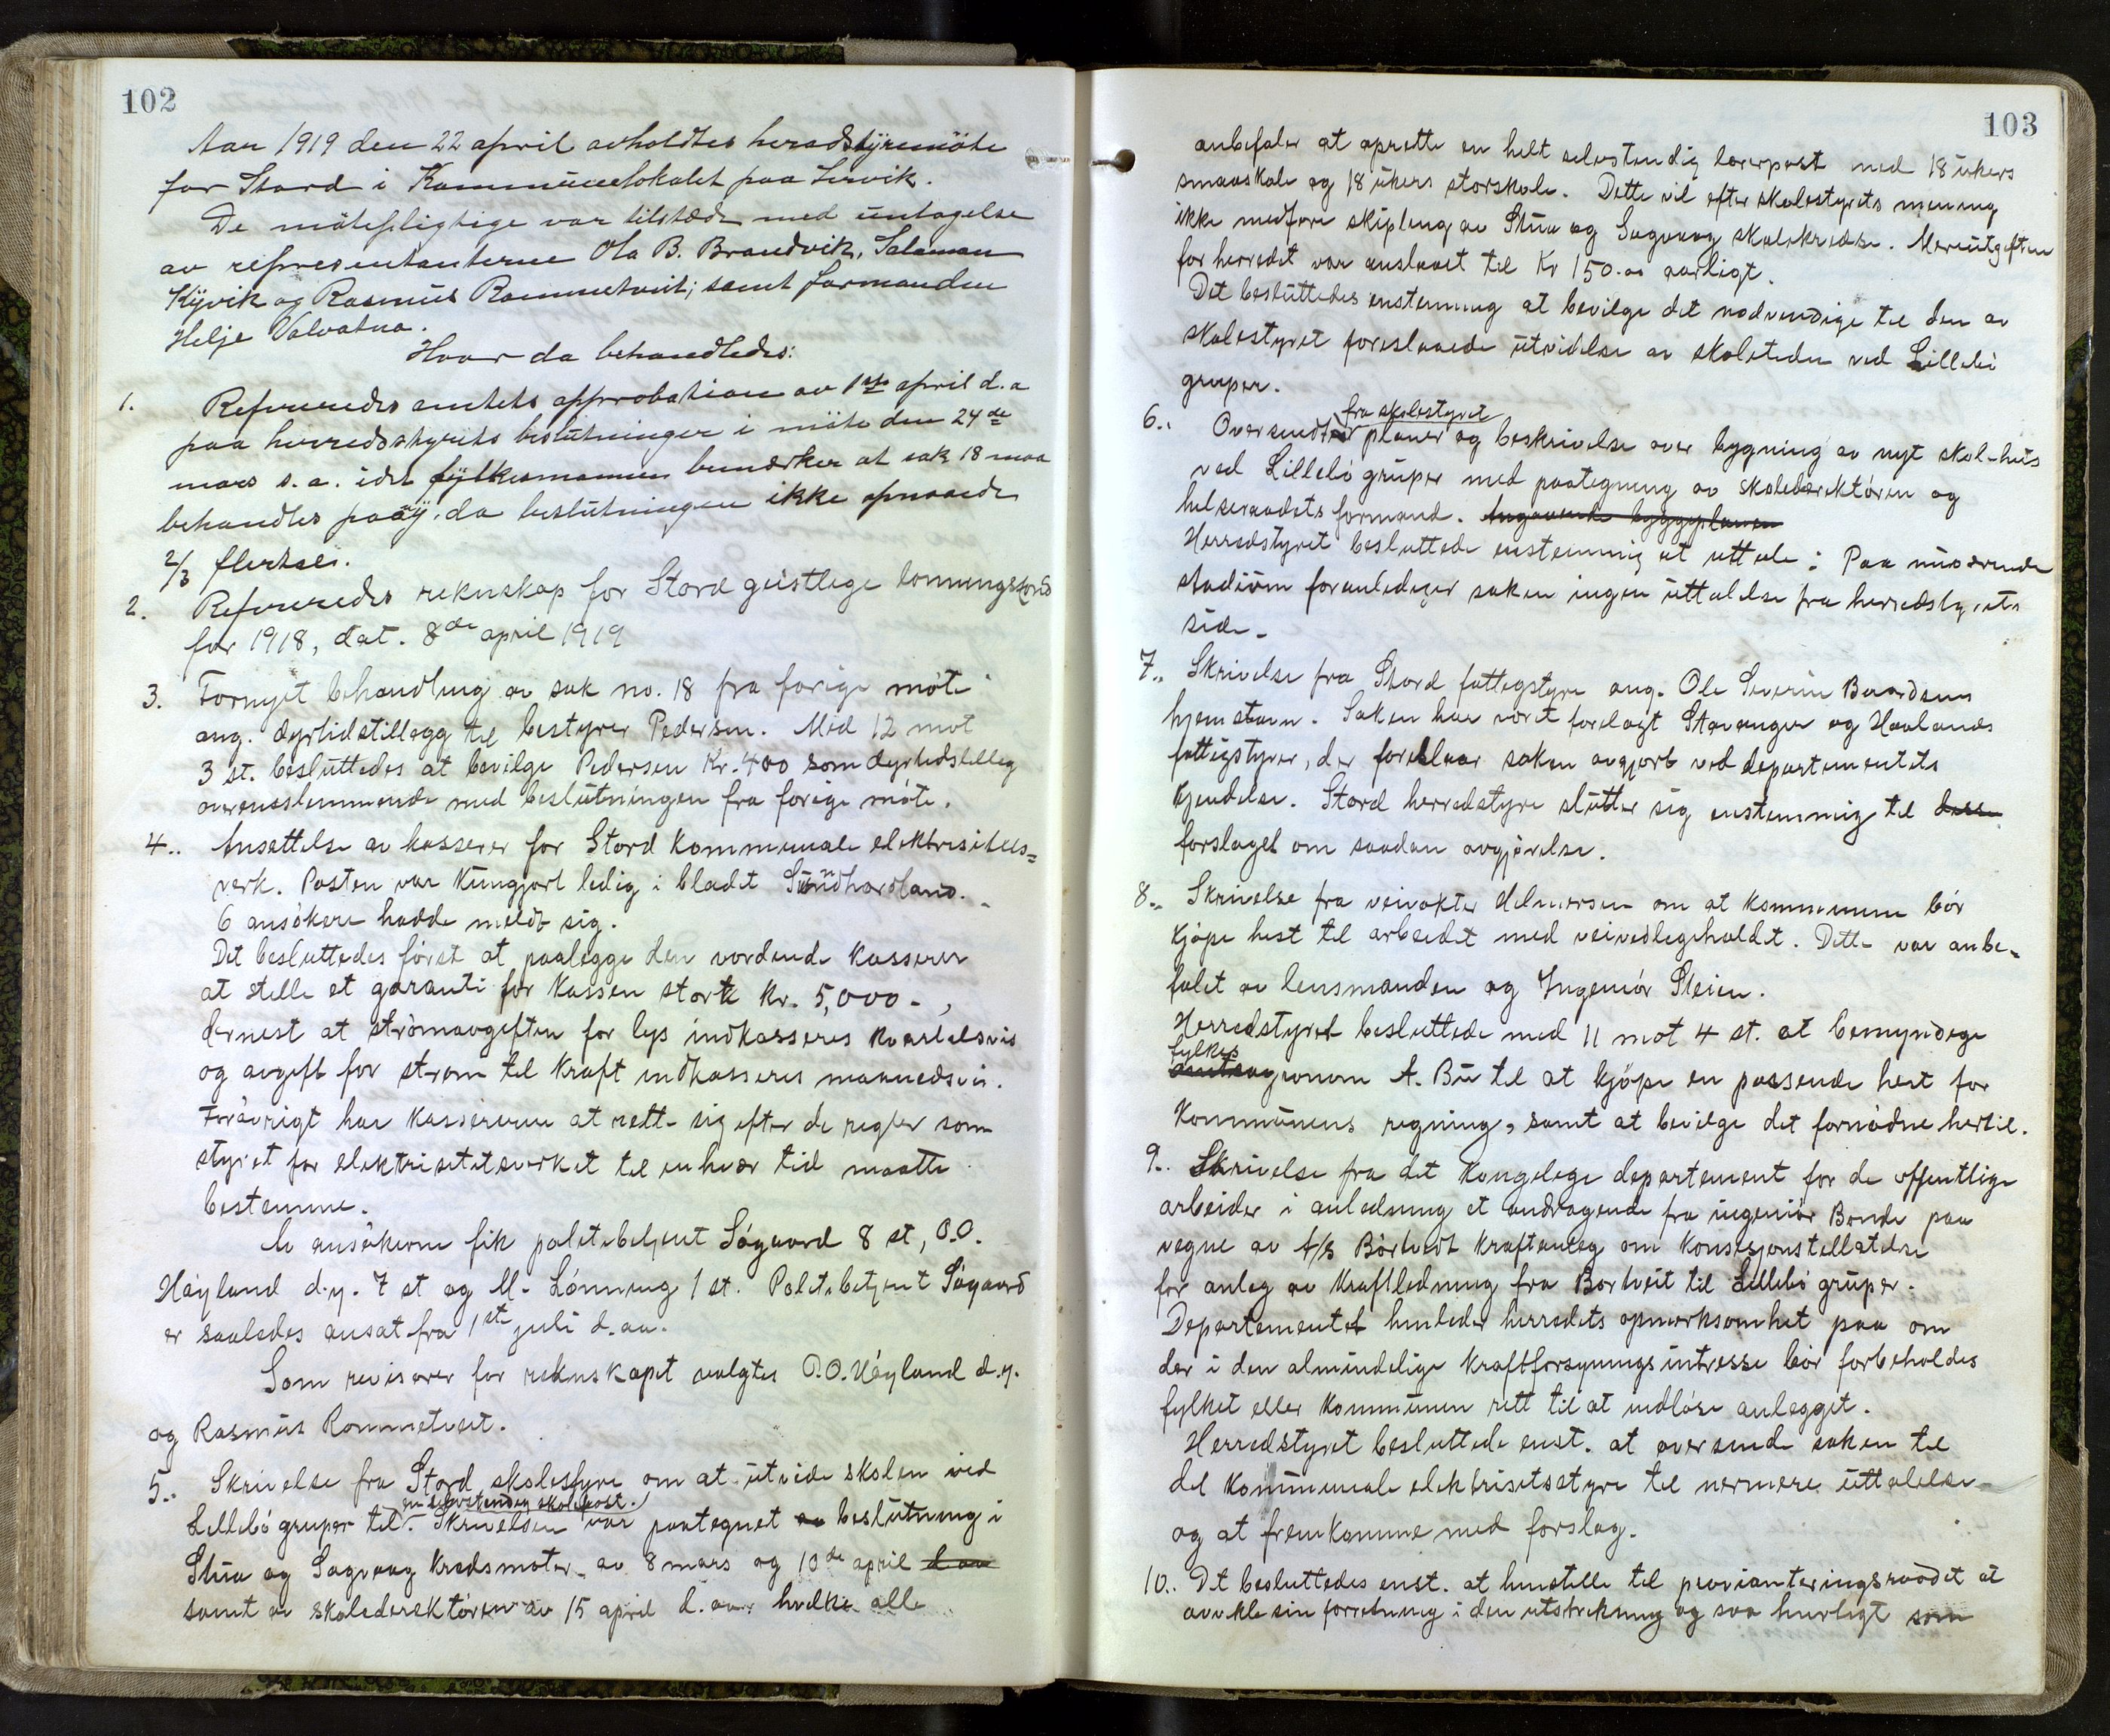 102
Aar 1919 den 22 april avholdtes heradstyremöte
for Stord i Kommunelokalet paa Lervik.
De mötepligtige var tilstæde med untagelse
av representanterne Ola B. Brandvik, Salamon
Kyvik og Rasmus Rommetveit; samt formanden
Helje Valvatna.
Hvor da behandledes:
1. Refereredes amtets approbation av 1ste april d.a
paa herredsstyrets beslutninger i möte den 24de
mars s.a. idet fylkesmannen bemærker at sak 18 maa
behandles paaÿ. da beslutningen ikke opnaade
2/3 flertal.
2. Refereredes reknskap for Stord geistlege lonningsfond
for 1918, dat. 8de april 1919
3. Fornyet behandling av sak no. 18 fra forige möte
ang. dyrtidstillegg til bestyrer Pedersen. Med 12 mot
3 st. besluttedes at bevilge Pedersen Kr. 400 som dyrtidstilleg
overensstemmende med beslutningen fra forige möte.
4.. Ansettelse av kasserer for Stord Kommunale elektrisitets=
verk. Posten var Kungjort ledig i bladet Sunnhordland.
6 ansökere hadde meldt sig.
Det besluttedes först at paalegge den vordende Kasserer
at stelle et garanti for Kassen stort kr. 5,000-,
dernest at strömavgiften for lys indkasseres kvartalsvis
og avgift for strom til Kraft indkasseres maanedsvis.
Foråvrigt har Kassereren at rette sig efter de regler som
styret for elektrisitetsverket til enhver tid maatte
bestemme.
Av ansökerne fik politibetjent Sögaard 8 st, O.O.
Höyland d.y. 7 st og M. Lönning 1 st. Politibetjent Sögaard
er saaledes ansat fra 1ste juli d.aa.
Som revisorer for reknskapet valgtes O.O. Höyland d.y.
og Rasmus Rommetveit.
5.. Skrivelse fra Stord skolestyre om at utvide skolen ved
en selvstendig skolepost.
Lillebö gruper til. Skrivelsen var paategnet av beslutning i
Stua og Sagvaag kredsmöter av 8 mars og 10de april d aa
samt av skoledirektören av 15 april d.aa. hvilke alle
103
anbefaler at oprette en helt selvstendig lærerpost med 18 ukers
smaaskole og 18 ukers storskole. Dette vil efter skolestyrets mening
ikke medföre skipling av Stua og Sagvaag skolekredse. Merutgiften
for herredet var anslaaet til Kr 150.00 aarligt.
Det besluttedes enstemmig at bevilge det nödvendige til den av
skolestyret foreslaaede utvidelse av skoletiden ved Lillebö
gruper.
fra skolestyret
6.. Oversendtes planer og beskrivelse over bygning av nyt skolehus
ved Lillebö gruper med paategning av skoledirektören og
helseraadets formand. Angaaende byggeplanen
Herredstyret besluttede enstemmig at uttale: Paa nuværende
stadium foranlediger saken ingen uttalelse fra herredstyrets
side.
7.. Skrivelse fra Stord fattegstyre ang. Ole Severin Baardsens
hjemstavn. Saken har været forelagt Stavanger og Havlands
fattigstyrer, der foreslaar saken avgjort ved departementets
Kjendelse. Stord herredstyre slutter sig enstemmig til
forslaget om saadan avgjörelse.
8.. Skrivelse fra veivokter Helmersen om at Kommunen bör
Kjöpe hest til arbeidet med veivedlegeholdet. Dette var anbe-
falet av lensmanden og Ingeniör Steien.
Herredstyret besluttede med 11 mot 4 st. at bemyndige
fylkes
amtsagronom A. Bu til at kjöpe en passende hest for
Kommunens regning, samt at bevilge det fornödne hertil.
9.. Skrivelse fra det Kongelege departement for de offentlige
arbeider i anledning et andragende fra ingeniör Bonde paa
vegne av A/s Börtvedt Kraftanleg om Konsesjonstillatelse
for anleg av Kraftledning fra Bortveit til Lillebö gruper.
Departementet henleder herredets opmerksomhet paa om
der i den almindelige Kraftforsynings intresse bör forbeholdes
fylket eller Kommunen rett til at indlöse anlegget.
Herredstyret besluttede enst. at oversende saken til
det Kommunale elektrisetsstyre til nermere uttalelse
og at fremkomme med forslag.
10.. Det besluttedes enst. at henstille til provianteringsraadet at
avvikle sin forretning i den utstrekning og saa hurtigt som